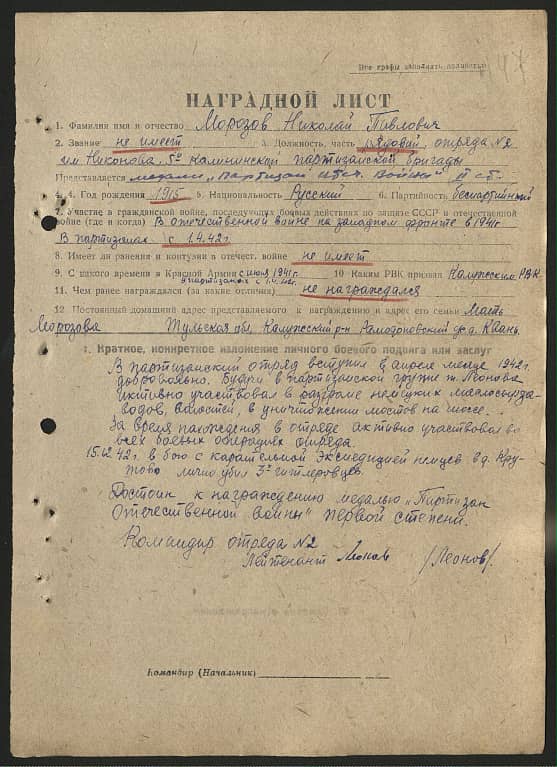 Все графы заполнять полностью
147
НАГРАДНОЙ ЛИСТ
1. Фамилия имя и отчество Морозов Николай Павлович
2. Звание не имеет 3. Должность, часть рядовой, отряда №2
им. Никонова, 5й Калининской партизанской бригады
Представляется медали „Партизан Отеч. Войны" II ст.
4. Год рождения 1915 5. Национальность Русский 6. Партийность беспартийный
7. Участие в гражданской войне, последующих боевых действиях по защите СССР и отечественной
войне (где и когда) В отечественной войне на западном фронте в 1941г
В партизанах с 1.4.42г.
8. Имеет ли ранения и контузии в отечест. войне не имеет
9. С какого времени в Красной Армии с июля 1941г. 10 Каким РВК призван Калужским РВК
в партизанах с 1.4.42г.
11. Чем ранее награждался (за какие отличия) не награждался
12 Постоянный домашний адрес представляемого к награждению и адрес его семьи Мать
Морозова Тульская обл, Калужский р-н д. Квань.
1. Краткое, конкретное изложение личного боевого подвига или заслуг
В партизанский отряд вступил в апреле месяце 1942г.
добровольно. Будучи в партизанской группе т. Леонова
активно участвовал в разгроме немецких маслосырза-
водов, волостей, в уничтожении мостов на шоссе.
За время нахождения в отряде активно участвовал во
всех боевых операциях отряда.
15.12.42г. в бою с карательной экспедицией немцев в д. Кру-
тово лично убил 3х гитлеровцев.
Достоин к награждению медалью „Партизан
Отечественной войны" первой степени.
Командир отряда №2
Лейтенант Леонов /Леонов/.
Командир (Начальник)